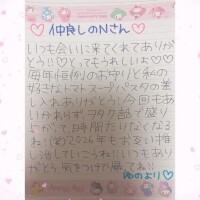 ♡仲良しのNさん♡
いつも会いに来てくれてありが
とう!!とってもうれしいよ♡
毎年恒例のお守りと私の
好きなトマトスープパスタの差し
入れありがとう!今回もあ
いかわらずヲタク話で盛り
上がって、時間たりなくなるね
2026年もお互い推
し活していこうね!!いつもあり
がとう、気をつけて帰ってね!!
ゆのより♡